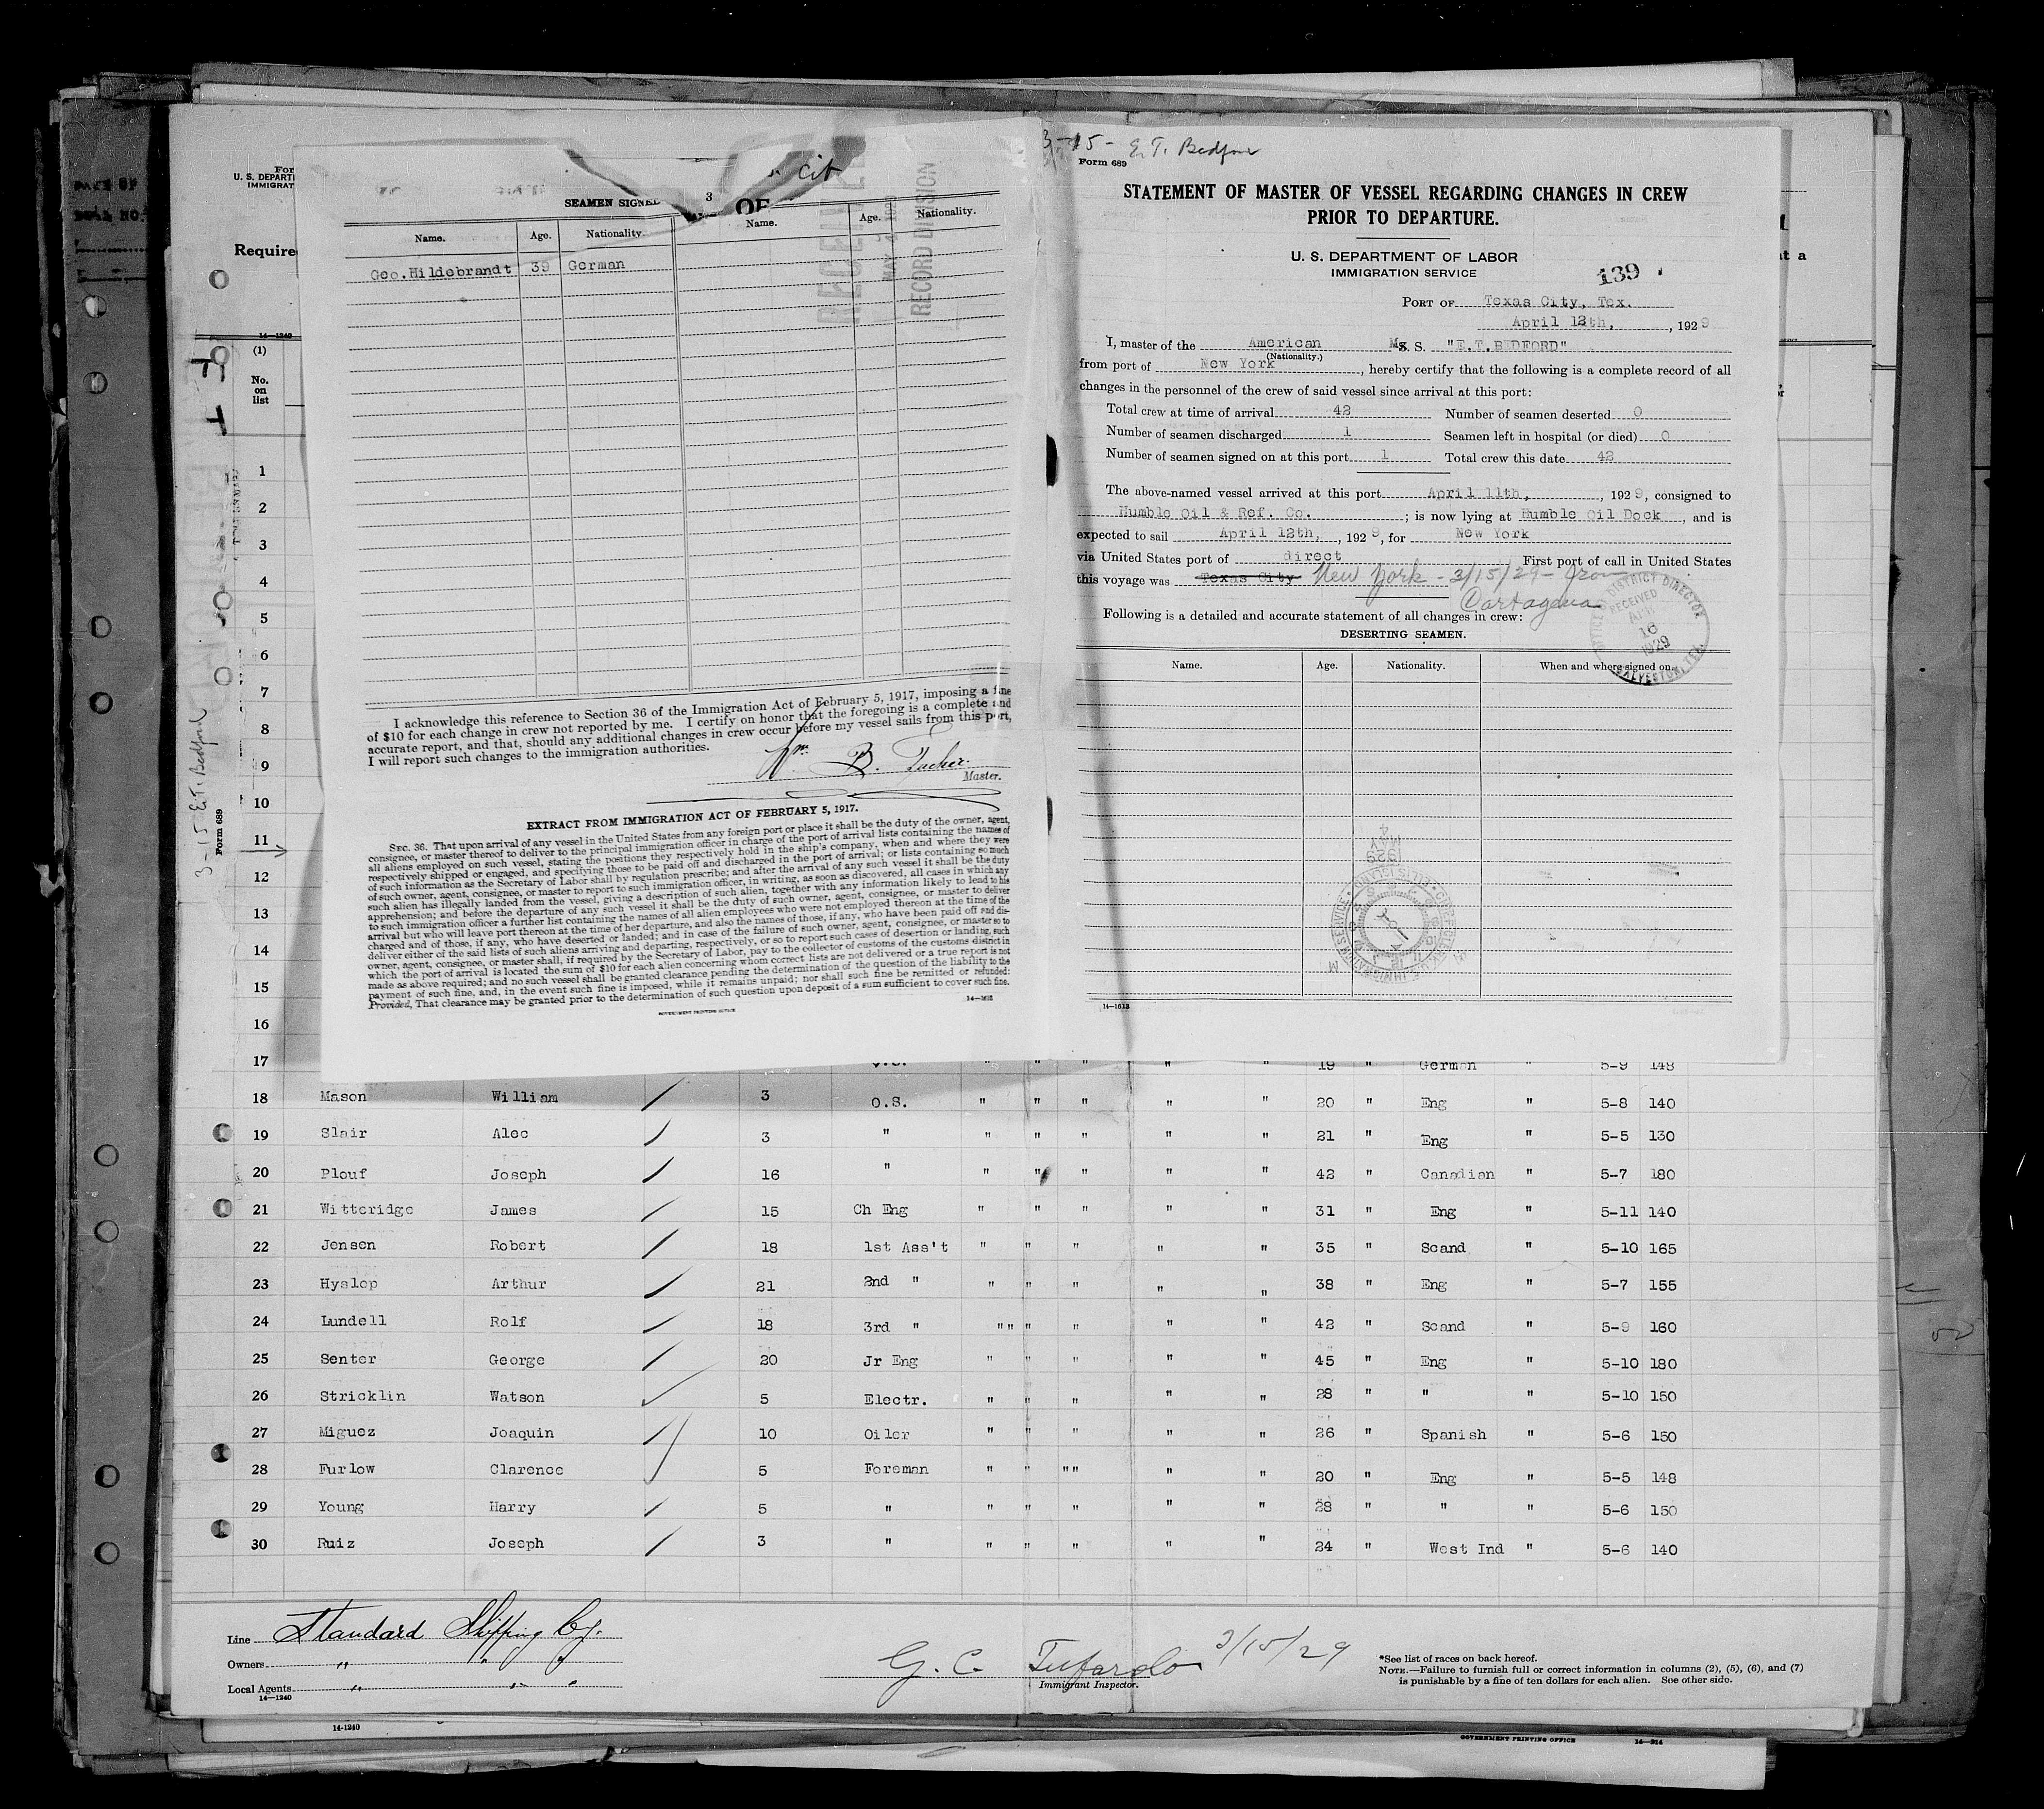 3-15- E. T. Bedford
Form 689
STATEMENT OF MASTER OF VESSEL REGARDING CHANGES IN CREW
PRIOR TO DEPARTURE.
U. S. DEPARTMENT OF LABOR
IMMIGRATION SERVICE
139
PORT OF Texas City, Tex.
April 12th, , 1929
I, master of the American S. S. "E.T.BEDFORD"
(Nationality.)
from port of New York , hereby certify that the following is a complete record of all
changes in the personnel of the crew of said vessel since arrival at this port:
Total crew at time of arrival 42 Number of seamen deserted 0
Number of seamen discharged 1 Seamen left in hospital (or died) 0
Number of seamen signed on at this port 1 Total crew this date 42
The above-named vessel arrived at this port April 11th, , 1929, consigned to
Humble Oil & Ref. Co. ; is now lying at Humble Oil Dock , and is
expected to sail April 12th, , 1929, for New York
via United States port of direct First port of call in United States
this voyage was Texas City New York - 3/15/29 - from
Cartagena
Following is a detailed and accurate statement of all changes in crew:
DESERTING SEAMEN.
Name. Age. Nationality. When and where signed on.
DISTRICT DIRECTOR
RECEIVED
16
1929
GALVESTON, TEX.
MAY
4
1929
14—1613
cit
SEAMEN SIGNED
3
OF
Name. Age. Nationality. Name. Age. Nationality.
Geo.Hildebrandt 39 German
RECEIVED
MAY
RECORD DIVISION
I acknowledge this reference to Section 36 of the Immigration Act of February 5, 1917, imposing a fine
of $10 for each change in crew not reported by me. I certify on honor that the foregoing is a complete and
accurate report, and that, should any additional changes in crew occur before my vessel sails from this port,
I will report such changes to the immigration authorities.
Master.
EXTRACT FROM IMMIGRATION ACT OF FEBRUARY 5, 1917.
SEC. 36. That upon arrival of any vessel in the United States from any foreign port or place it shall be the duty of the owner, agent,
consignee, or master thereof to deliver to the principal immigration officer in charge of the port of arrival lists containing the names of
all aliens employed on such vessel, stating the positions they respectively hold in the ship's company, when and where they were
respectively shipped or engaged, and specifying those to be paid off and discharged in the port of arrival; or lists containing so much
of such information as the Secretary of Labor shall by regulation prescribe; and after the arrival of any such vessel it shall be the duty
of such owner, agent, consignee, or master to report to such immigration officer, in writing, as soon as discovered, all cases in which any
such alien has illegally landed from the vessel, giving a description of such alien, together with any information likely to lead to his
apprehension; and before the departure of any such vessel it shall be the duty of such owner, agent, consignee, or master to deliver
to such immigration officer a further list containing the names of all alien employees who were not employed thereon at the time of the
arrival but who will leave port thereon at the time of her departure, and also the names of those, if any, who have been paid off and dis-
charged and of those, if any, who have deserted or landed; and in case of the failure of such owner, agent, consignee, or master so to
deliver either of the said lists of such aliens arriving and departing, respectively, or so to report such cases of desertion or landing, such
owner, agent, consignee, or master shall, if required by the Secretary of Labor, pay to the collector of customs of the customs district in
which the port of arrival is located the sum of $10 for each alien concerning whom correct lists are not delivered or a true report is not
made as above required; and no such vessel shall be granted clearance pending the determination of the question of the liability to the
payment of such fine, and, in the event such fine is imposed, while it remains unpaid; nor shall such fine be remitted or refunded:
Provided, That clearance may be granted prior to the determination of such question upon deposit of a sum sufficient to cover such fine.
14—1613
GOVERNMENT PRINTING OFFICE
For
U. S. DEPARTI
IMMIGRAT
Require
14—1240
(1)
No.
on
list
3-15 E.T. Bedford
Form 689
1
2
3
4
5
6
7
8
9
10
11
12
13
14
15
16
17 " " " " " 19 " German " 5-9 148
18 Mason William 3 O.S. " " " " " 20 " Eng " 5-8 140
19 Slair Alec 3 " " " " " " 21 " Eng " 5-5 130
20 Plouf Joseph 16 " " " " " 42 " Canadian " 5-7 180
21 Witteridge James 15 Ch Eng " " " " " 31 " Eng " 5-11 140
22 Jensen Robert 18 1st Ass't " " " " " 35 " Scand " 5-10 165
23 Hyslop Arthur 21 2nd " " " " " " 38 " Eng " 5-7 155
24 Lundell Rolf 18 3rd " " " " " " " 42 " Scand " 5-9 160
25 Senter George 20 Jr Eng " " " " " 45 " Eng " 5-10 180
26 Stricklin Watson 5 Electr. " " " " " 28 " " " 5-10 150
27 Miguez Joaquin 10 Oiler " " " " " 26 " Spanish " 5-6 150
28 Furlow Clarence 5 Foreman " " " " " " 20 " Eng " 5-5 148
29 Young Harry 5 " " " " " " 28 " " " 5-6 150
30 Ruiz Joseph 3 " " " " " " 24 " West Ind " 5-6 140
Line Standard Shipping Co.
Owners " " "
Local Agents " " "
14—1240
G. C. Tufardo 3/15/29
Immigrant Inspector.
*See list of races on back hereof.
NOTE.—Failure to furnish full or correct information in columns (2), (5), (6), and (7)
is punishable by a fine of ten dollars for each alien. See other side.
14-1240
GOVERNMENT PRINTING OFFICE 14—214